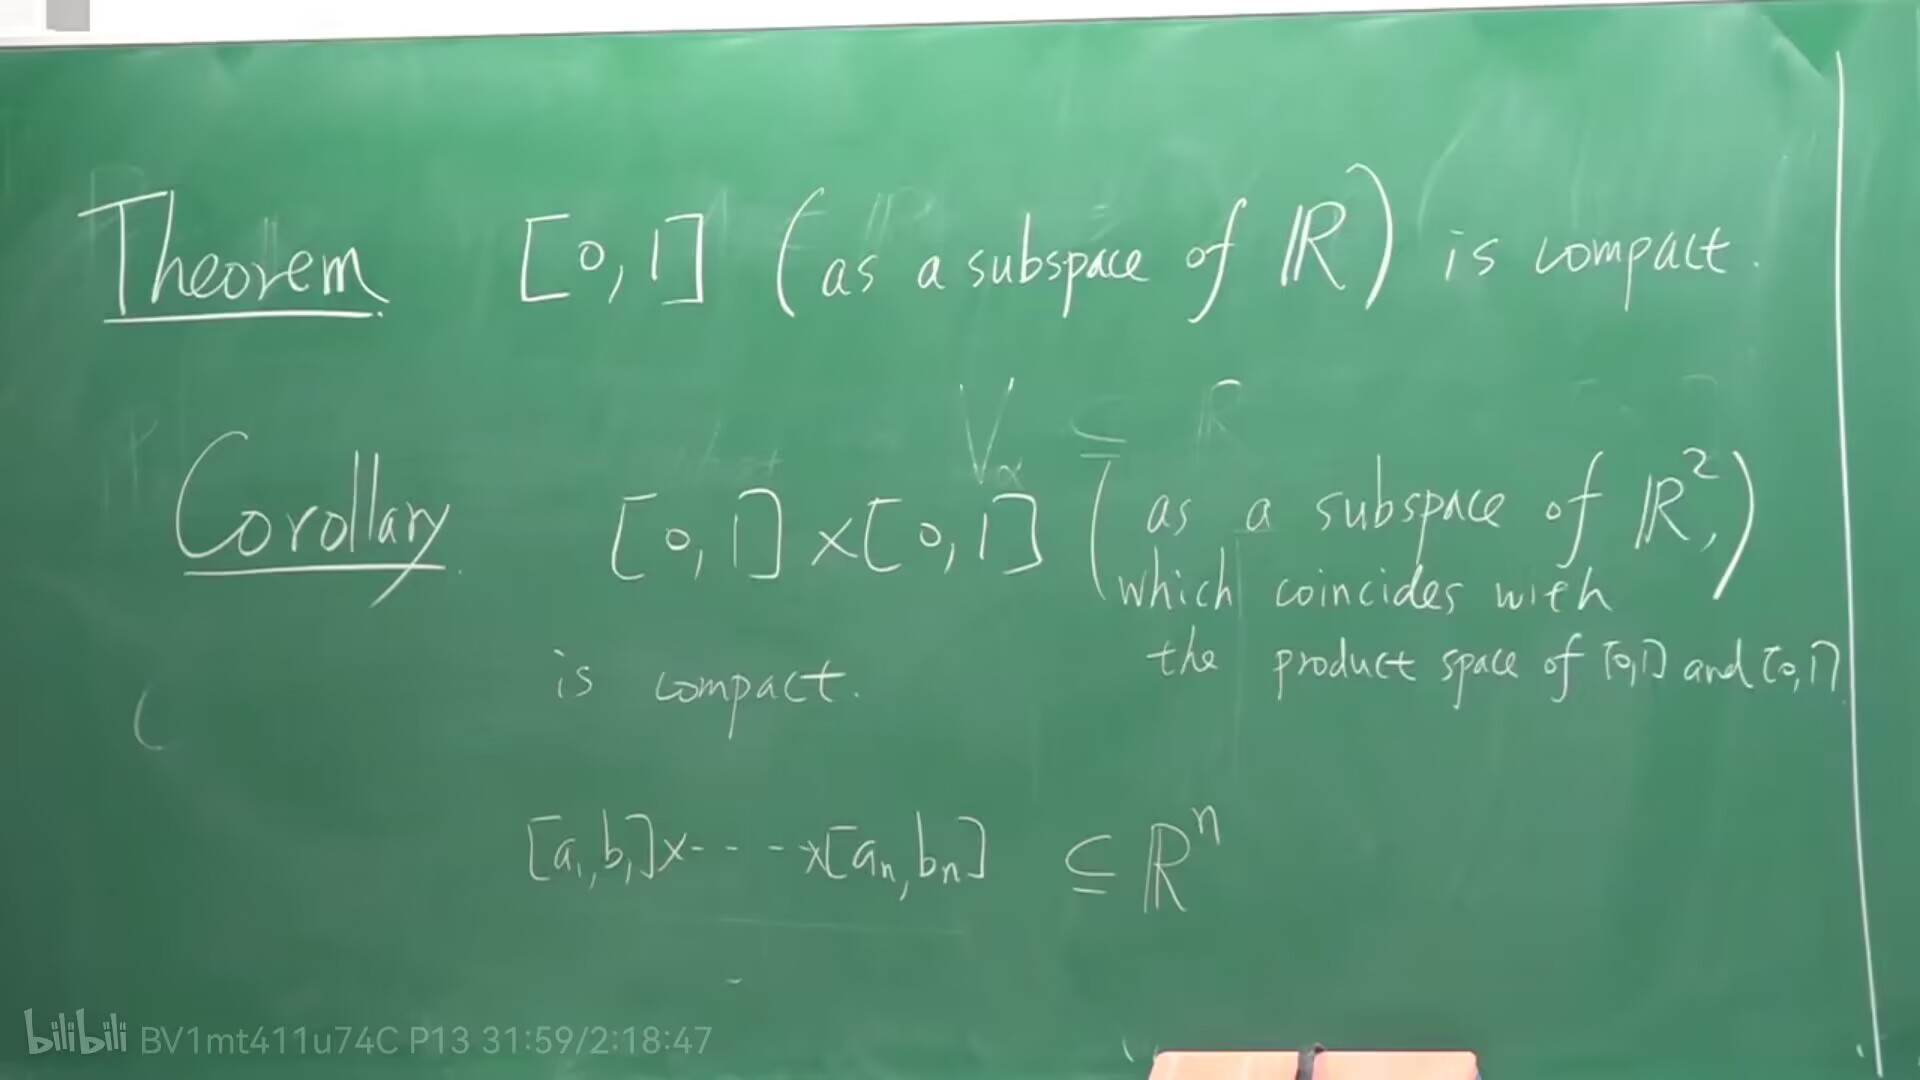 Theorem [0,1] (as a subspace of ℝ) is compact.
V_α ⊆ ℝ
Corollary [0,1]×[0,1] (as a subspace of ℝ²,)
which coincides with
the product space of [0,1] and [0,1]
is compact.
[a₁,b₁]×----×[aₙ,bₙ] ⊆ ℝⁿ
bilibili BV1mt411u74C P13 31:59/2:18:47